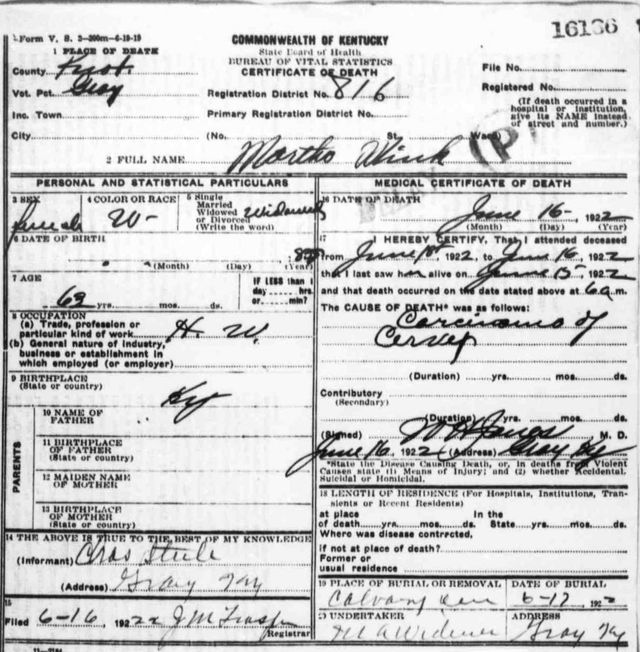 16136
Form V. S. 3-200m-6-19-19
COMMONWEALTH OF KENTUCKY
State Board of Health
BUREAU OF VITAL STATISTICS
CERTIFICATE OF DEATH
1 PLACE OF DEATH
County
Vot. Pct. Gray
Inc. Town
City
Registration District No. 816
Primary Registration District No.
(No. St. Ward)
File No.
Registered No.
(If death occurred in a
hospital or institution,
give its NAME instead
of street and number.)
(P)
2 FULL NAME Martha
PERSONAL AND STATISTICAL PARTICULARS
3 SEX
Female
4 COLOR OR RACE
W-
5 Single
Married
Widowed
or Divorced
(Write the word)
Widowed
6 DATE OF BIRTH
(Month) (Day) (Year)
7 AGE
69 yrs. mos. ds.
IF LESS than 1
day hrs.
or min.?
8 OCCUPATION
(a) Trade, profession or
particular kind of work H. W.
(b) General nature of industry,
business or establishment in
which employed (or employer)
9 BIRTHPLACE
(State or country)
Ky
PARENTS
10 NAME OF
FATHER
11 BIRTHPLACE
OF FATHER
(State or country)
12 MAIDEN NAME
OF MOTHER
13 BIRTHPLACE
OF MOTHER
(State or country)
14 THE ABOVE IS TRUE TO THE BEST OF MY KNOWLEDGE
(Informant) Chas Steele
(Address) Gray Ky
15
Filed 6-16, 1922 J M
Registrar
MEDICAL CERTIFICATE OF DEATH
16 DATE OF DEATH
June 16- , 1922
(Month) (Day) (Year)
17 I HEREBY CERTIFY, That I attended deceased
from June , 1922, to June 16, 1922
that I last saw her alive on June 15-, 1922
and that death occurred on the date stated above at 6 a.m.
The CAUSE OF DEATH* was as follows:
Carcinoma of
Cervex
(Duration) yrs. mos. ds.
Contributory
(Secondary)
(Duration) yrs. mos. ds.
(Signed) M. D.
June 16, 1922 (Address) Gray Ky
*State the Disease Causing Death, or, in deaths from Violent
Causes state (1) Means of Injury; and (2) whether Accidental,
Suicidal or Homicidal.
18 LENGTH OF RESIDENCE (For Hospitals, Institutions, Tran-
sients or Recent Residents)
at place In the
of death yrs. mos. ds. State yrs. mos. ds.
Where was disease contrected,
if not at place of death?
Former or
usual residence
19 PLACE OF BURIAL OR REMOVAL
Calvary Cem
DATE OF BURIAL
6-17 192
20 UNDERTAKER
M A Widener
ADDRESS
Gray Ky